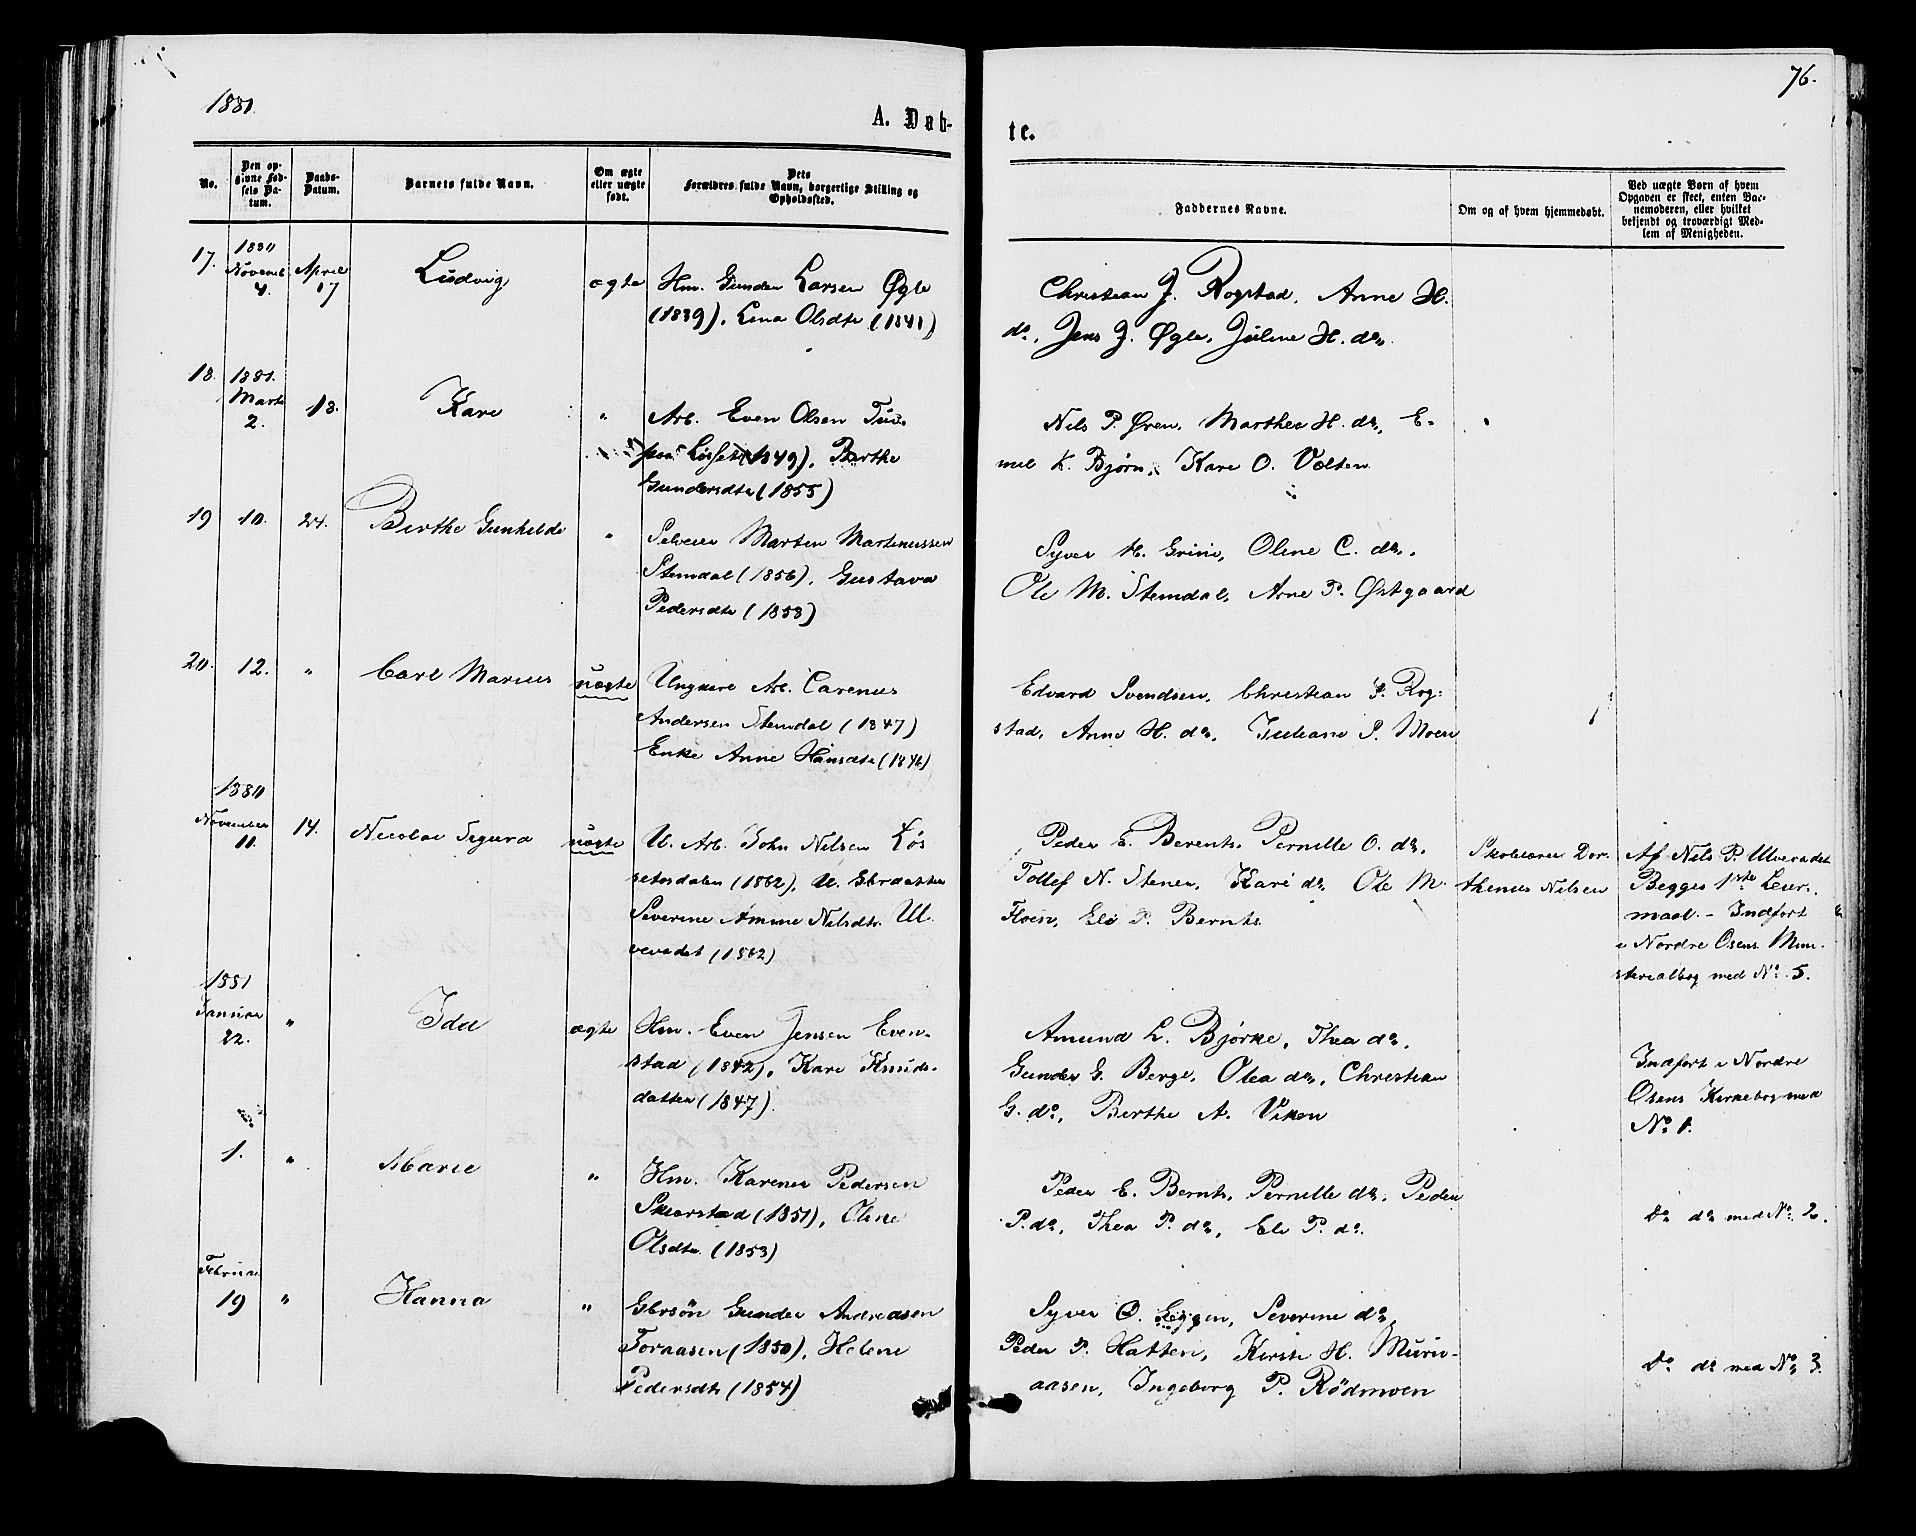 1881.
A. Døb-
te.
76.
No.
Den op-
givne Fød-
sels Da-
tum.
Daabs-
Datum.
Barnets fulde Navn.
Om ægte
eller uægte
født.
Dets
Forældres fulde Navn, borgerlige Stilling og
Opholdssted.
Faddernes Navne.
Om og af hvem hjemmedøbt.
Ved uægte Børn af hvem
Opgaven er skeet, enten Bar-
nemoderen, eller hvilket
bekjendt og troværdigt Med-
lem af Menigheden.
17.
1880
Novemb.
4.
April
17
Ludvig
ægte
Hm. Gunder Larsen Øgle
(1839), Lena Olsdtr (1841)
Christian J. Rogstad, Anne H.
do, Jens J. Øgle, Juline H. do.
18.
1881.
Marts
2.
18.
Kari
"
Arb. Even Olsen
(1849), Berthe
Gundersdtr (1855)
Nils P. Øren, Marthea H. do, E-
mil K. Bjørn, Kari O. Volten
19
10.
24.
Berthe Gunhilde
"
Selveier Marten Martinussen
Stemdal (1856), Gustava
Pedersdtr (1858)
Syver H. Grini, Oline C. do,
Ole M. Stemdal, Arne P. Østgaard
20.
12.
"
Carl Marius
uægte
Ungkarl Arb. Carenus
Andersen Stemdal (1847)
Enke Anne Hansdtr (1846)
Edvard Svendsen, Christian J. Rog-
stad, Anne H. do, Juliane P. Moen
1880
November
11.
14.
Nicolai Sigurd
uægte
U. Arb. John Nilsen Løs
setosdalen (1862), U. Gbrdatter
Severine Amme Nilsdtr. Ul-
vevadet (1862)
Peder E. Berents, Pernille O. do,
Tollef N. Stener, Kari do, Ole M.
Floen, Eli P. Bernts
Skolelærer Dor-
thenus Nilsen
Af Nils P. Ulvevadet
Begges 1ste Leier-
maal. - Indført
i Nordre Osens Mini-
sterialbog med No. 5.
1881
Januar
22.
"
Ida
ægte
Hm. Even Jensen Even-
stad (1842), Kari Knuds-
datter (1847).
Amund L. Bjørke, Thea do,
Gunder G. Berge, Olea do, Christian
G. do, Berthe A. Viken
Indført i Nordre
Osens Kirkebog med
No 1.
1.
"
Marie
"
Hm. Karenus Pedersen
Skjærstad (1851), Oline
Olsdtr. (1853)
Peder E. Bernts, Pernille do, Peder
P. do, Thea P. do, Eli P. do.
Do do med No. 2.
Februar
19
"
Hanna
"
Gbrsøn Gunder Andreasen
Toraasen (1850), Helene
Pedersdtr (1854)
Syver O. Eggen, Severine do,
Peder P. Hatten, Kirsti H. Muru-
aasen, Ingeborg P. Rødmoen
Do do med No 3.